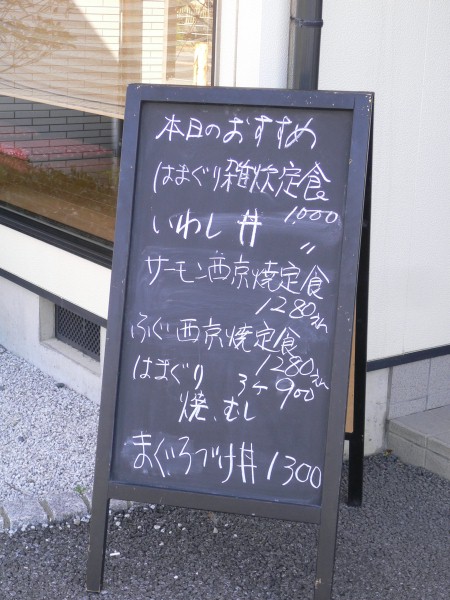 本日のおすすめ
はまぐり雑炊定食
1,000
いわし丼 〃
サーモン西京焼定食
1280えん
ふぐ西京焼定食
1280えん
はまぐり 3ケ 900
焼、むし
まぐろづけ丼 1300